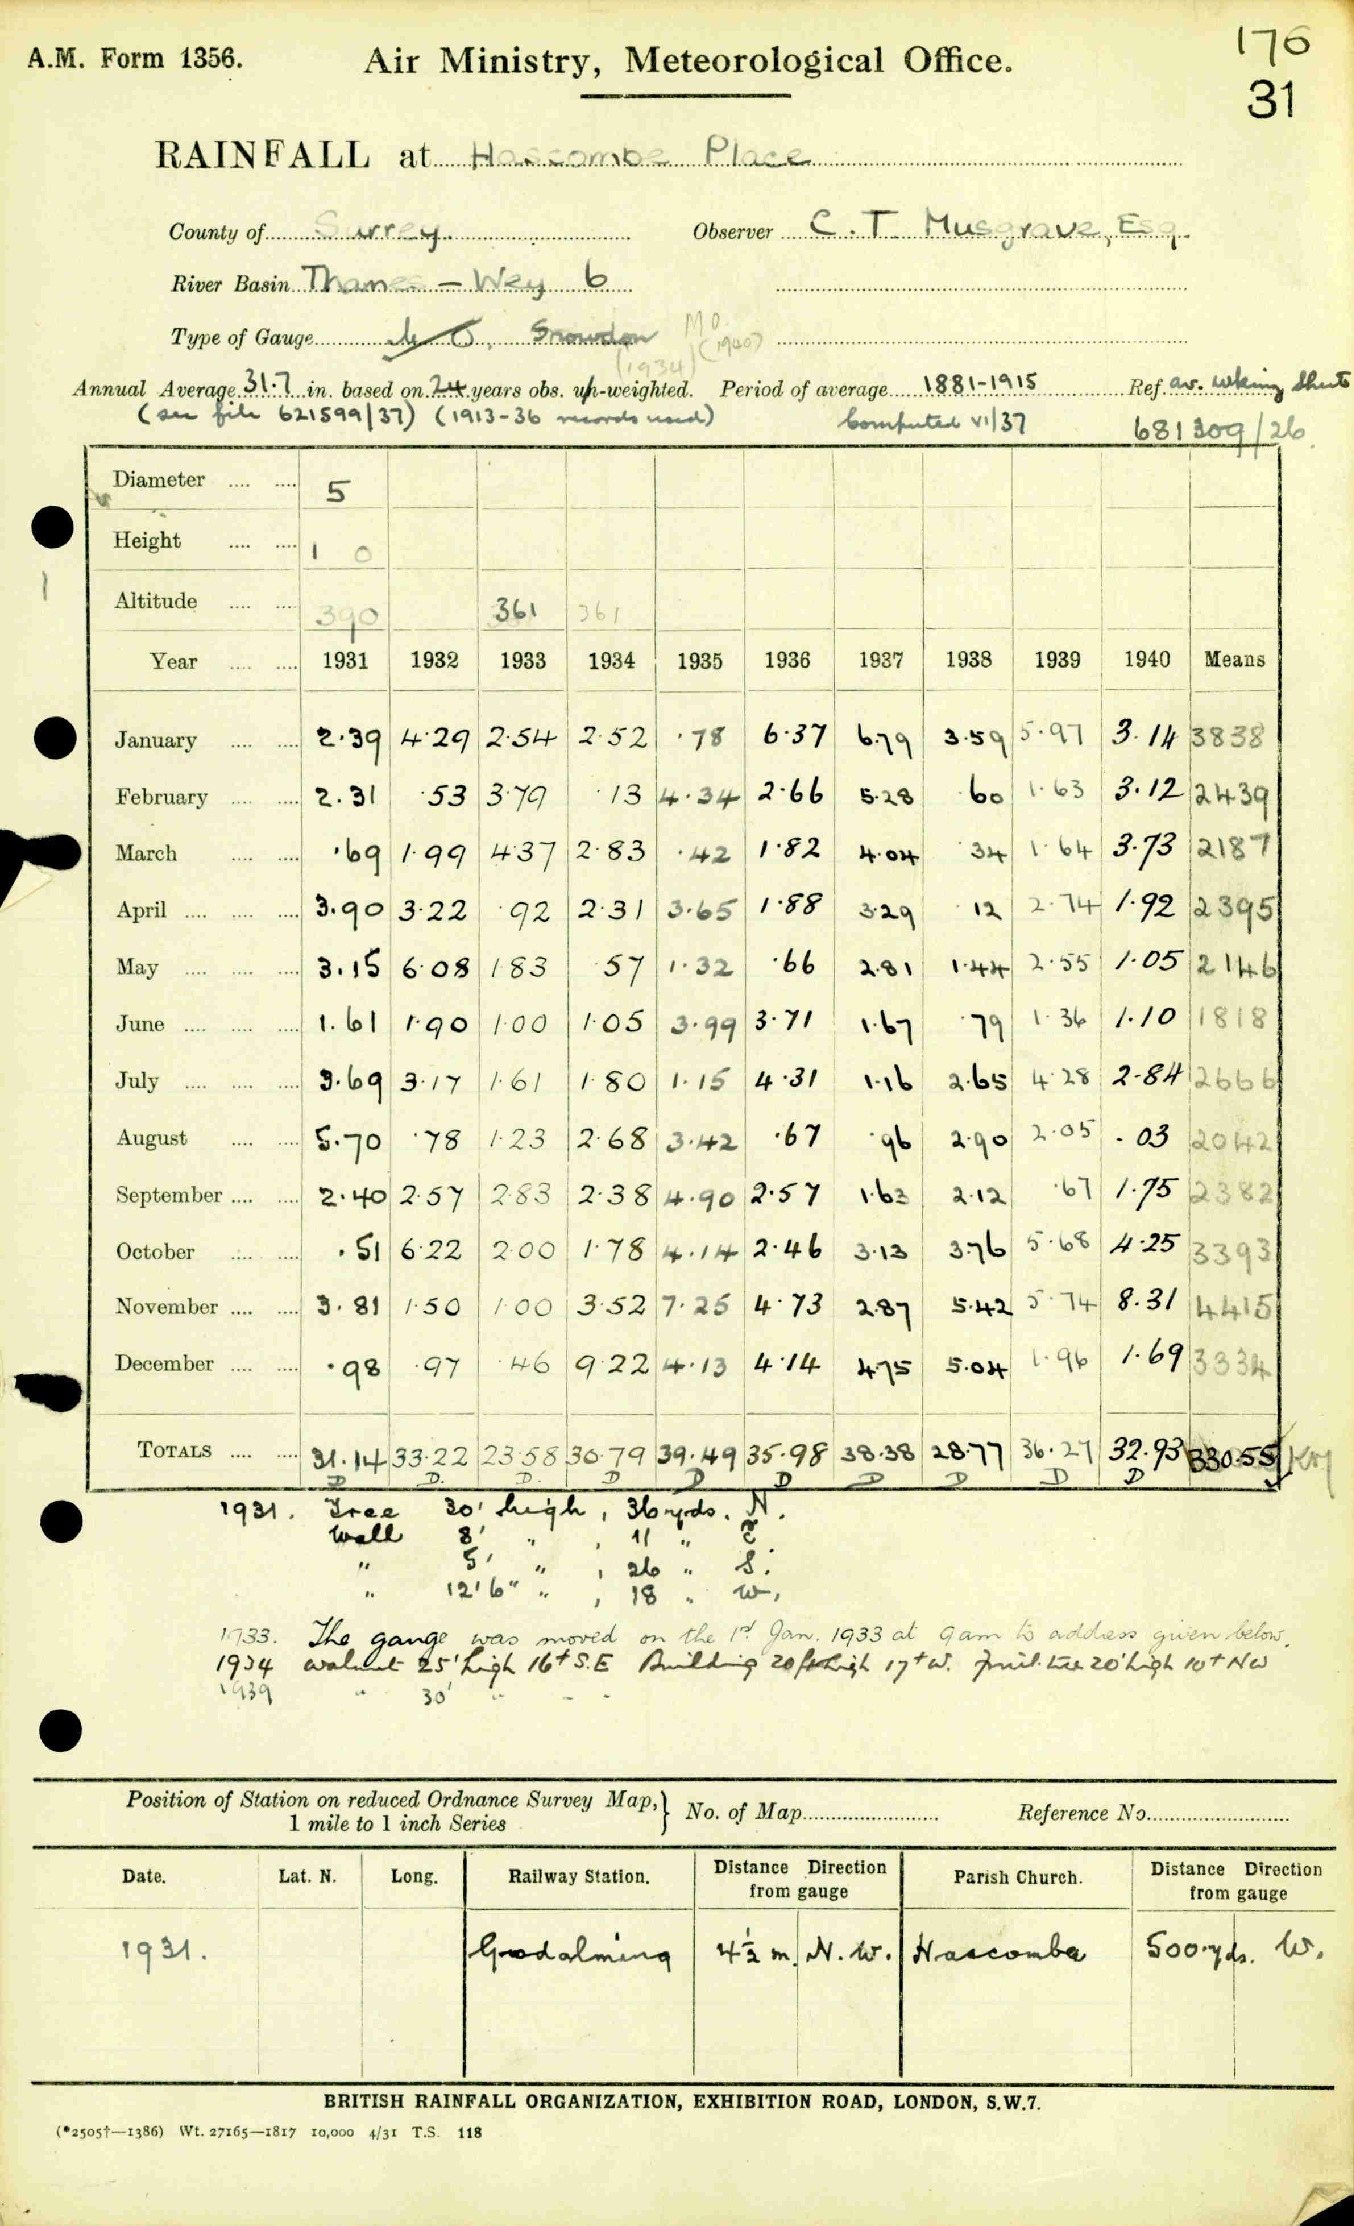 176
A.M. Form 1356. Air Ministry, Meteorological Office.
31
RAINFALL at Hascombe Place
County of Surrey. Observer C. T. Musgrave, Esq.
River Basin Thames – Wey 6
Type of Gauge M O, Snowdon M O
(1934) (1940)
Annual Average 31.7 in. based on 24 years obs. un-weighted. Period of average 1881-1915 Ref. av. wking sheets
(see file 621599/37) (1913-36 records used) Computed VI/37 681309/26
Diameter 5
Height 1 0
Altitude 390 361 361
Year 1931 1932 1933 1934 1935 1936 1937 1938 1939 1940 Means
January 2.39 4.29 2.54 2.52 .78 6.37 6.79 3.59 5.97 3.14 3838
February 2.31 .53 3.79 .13 4.34 2.66 5.28 .60 1.63 3.12 2439
March .69 1.99 4.37 2.83 .42 1.82 4.04 .34 1.64 3.73 2187
April 3.90 3.22 .92 2.31 3.65 1.88 3.29 .12 2.74 1.92 2395
May 3.15 6.08 1.83 .57 1.32 .66 2.81 1.44 2.55 1.05 2146
June 1.61 1.90 1.00 1.05 3.99 3.71 1.67 .79 1.36 1.10 1818
July 3.69 3.17 1.61 1.80 1.15 4.31 1.16 2.65 4.28 2.84 2666
August 5.70 .78 1.23 2.68 3.42 .67 .96 2.90 2.05 .03 2042
September 2.40 2.57 2.83 2.38 4.90 2.57 1.63 2.12 .67 1.75 2382
October .51 6.22 2.00 1.78 4.14 2.46 3.13 3.76 5.68 4.25 3393
November 3.81 1.50 1.00 3.52 7.25 4.73 2.87 5.42 5.74 8.31 4415
December .98 .97 .46 9.22 4.13 4.14 4.75 5.04 1.96 1.69 3334
TOTALS 31.14 33.22 23.58 30.79 39.49 35.98 38.38 28.77 36.27 32.93 330.55
D D. D. D D D D D D D
1931. Tree 30' high, 36 yds. N.
Wall 8' " , 11 " E
" 5' " , 26 " S.
" 12'6" " , 18 " W.
1933. The gauge was moved on the 1st Jan. 1933 at 9am to address given below.
1934 walnut 25' high 16+ S.E Building 20ft high 17+ W. fruit tree 20' high 10+ NW
1939 " 30' " - -
Position of Station on reduced Ordnance Survey Map,} No. of Map Reference No.
1 mile to 1 inch Series
Date. Lat. N. Long. Railway Station. Distance Direction from gauge Parish Church. Distance Direction from gauge
1931. Godalming 4½ m. N. W. Hascombe 500 yds. W.
BRITISH RAINFALL ORGANIZATION, EXHIBITION ROAD, LONDON, S.W.7.
(*2505†—1386) Wt. 27165—1817 10,000 4/31 T.S. 118